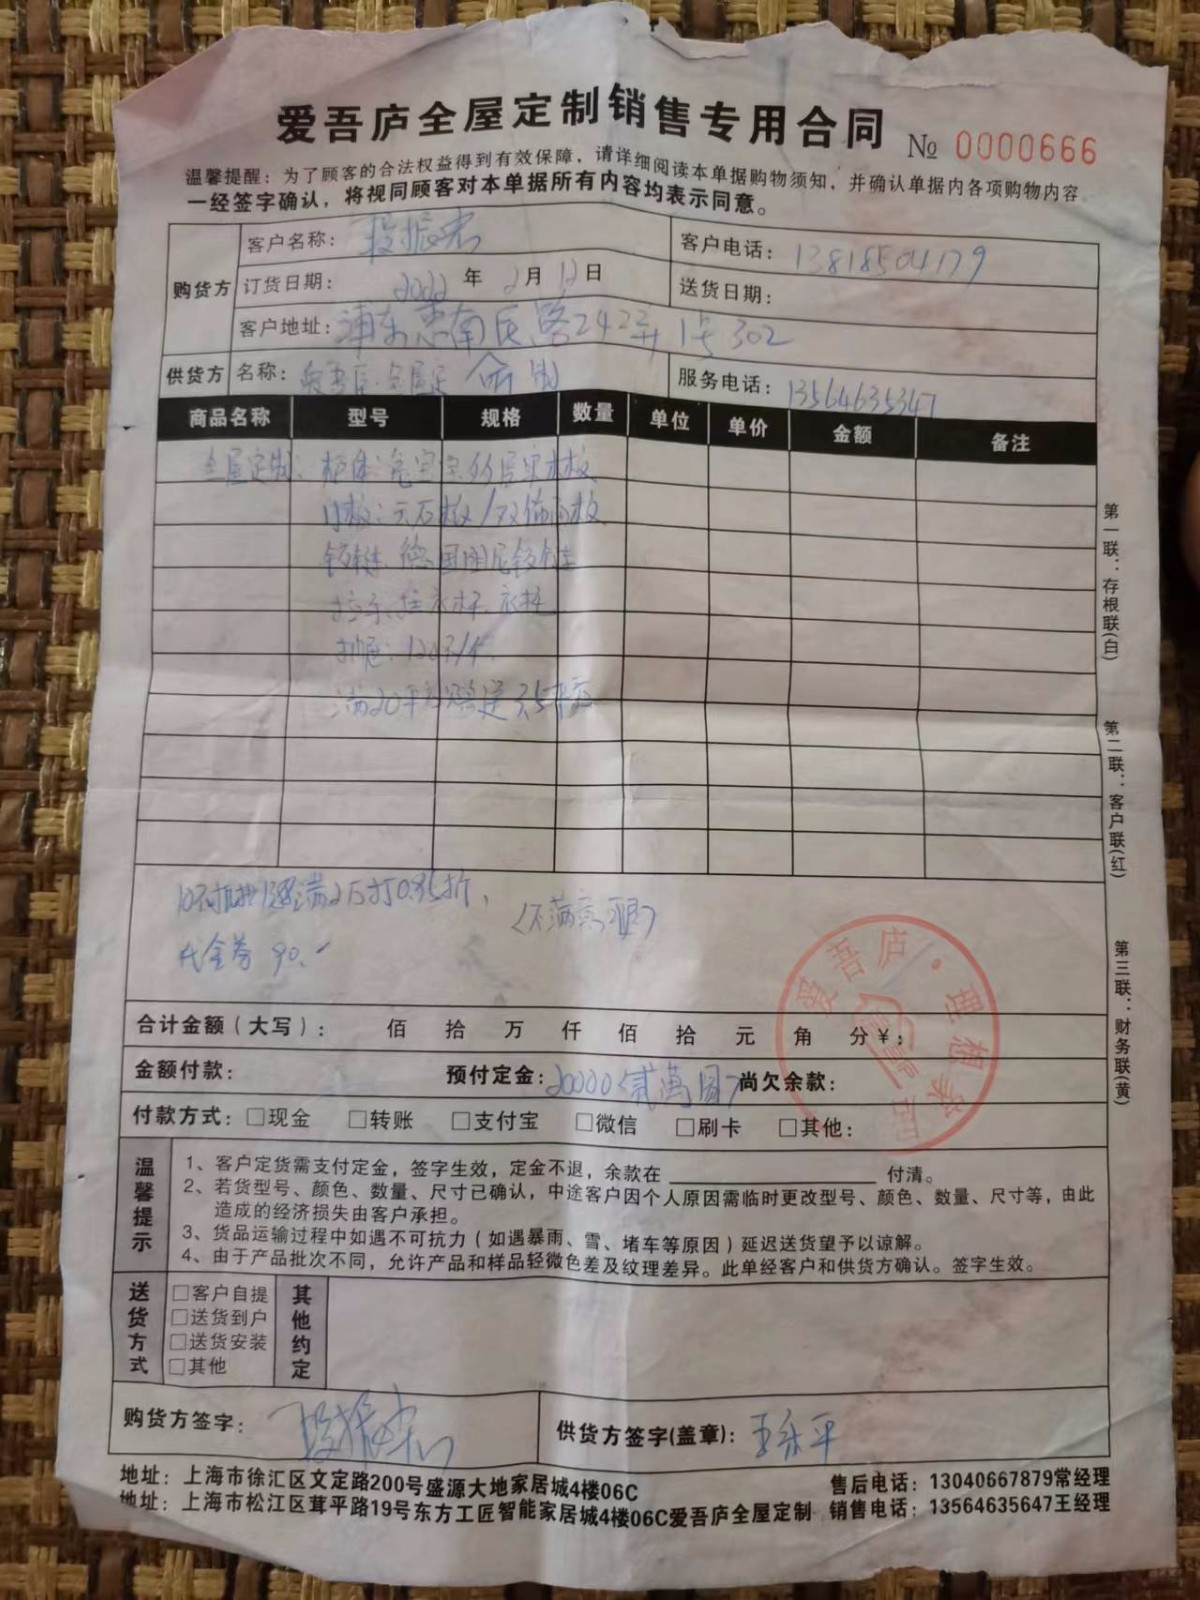 爱吾庐全屋定制销售专用合同 № 0000666
温馨提醒：为了顾客的合法权益得到有效保障，请详细阅读本单据购物须知，并确认单据内各项购物内容
一经签字确认，将视同顾客对本单据所有内容均表示同意。
购货方
客户名称： 段振宏 客户电话： 13818504179
订货日期： 2022 年 2 月 12 日 送货日期：
客户地址： 浦东惠南 路2422弄1号302
供货方 名称： 爱吾庐全屋定 服务电话： 13564635347
商品名称 型号 规格 数量 单位 单价 金额 备注
全屋定制、柜体：兔宝宝多层实木板
门板： 石板/双饰面板
铰链、德国 尼铰链
拉手、挂衣杆、
抽屉：120元/个
满20平方 送3.5平方
满2万打0.85折，
代金券 90.- 〈不满意退〉
合计金额（大写）： 佰 拾 万 仟 佰 拾 元 角 分￥：
金额付款： 预付定金： 20000〈贰萬圆〉 尚欠余款：
付款方式：□现金 □转账 □支付宝 □微信 □刷卡 □其他：
温馨提示
1、客户定货需支付定金，签字生效，定金不退，余款在 付清。
2、若货型号、颜色、数量、尺寸已确认，中途客户因个人原因需临时更改型号、颜色、数量、尺寸等，由此
造成的经济损失由客户承担。
3、货品运输过程中如遇不可抗力（如遇暴雨、雪、堵车等原因）延迟送货望予以谅解。
4、由于产品批次不同，允许产品和样品轻微色差及纹理差异。此单经客户和供货方确认。签字生效。
送货方式
□客户自提
□送货到户
□送货安装
□其他
其他约定
购货方签字： 段振宏 供货方签字(盖章)： 王永平
地址：上海市徐汇区文定路200号盛源大地家居城4楼06C 售后电话：13040667879常经理
地址：上海市松江区茸平路19号东方工匠智能家居城4楼06C爱吾庐全屋定制 销售电话：13564635647王经理
第一联：存根联(白)
第二联：客户联(红)
第三联：财务联(黄)
爱吾庐·理想家居